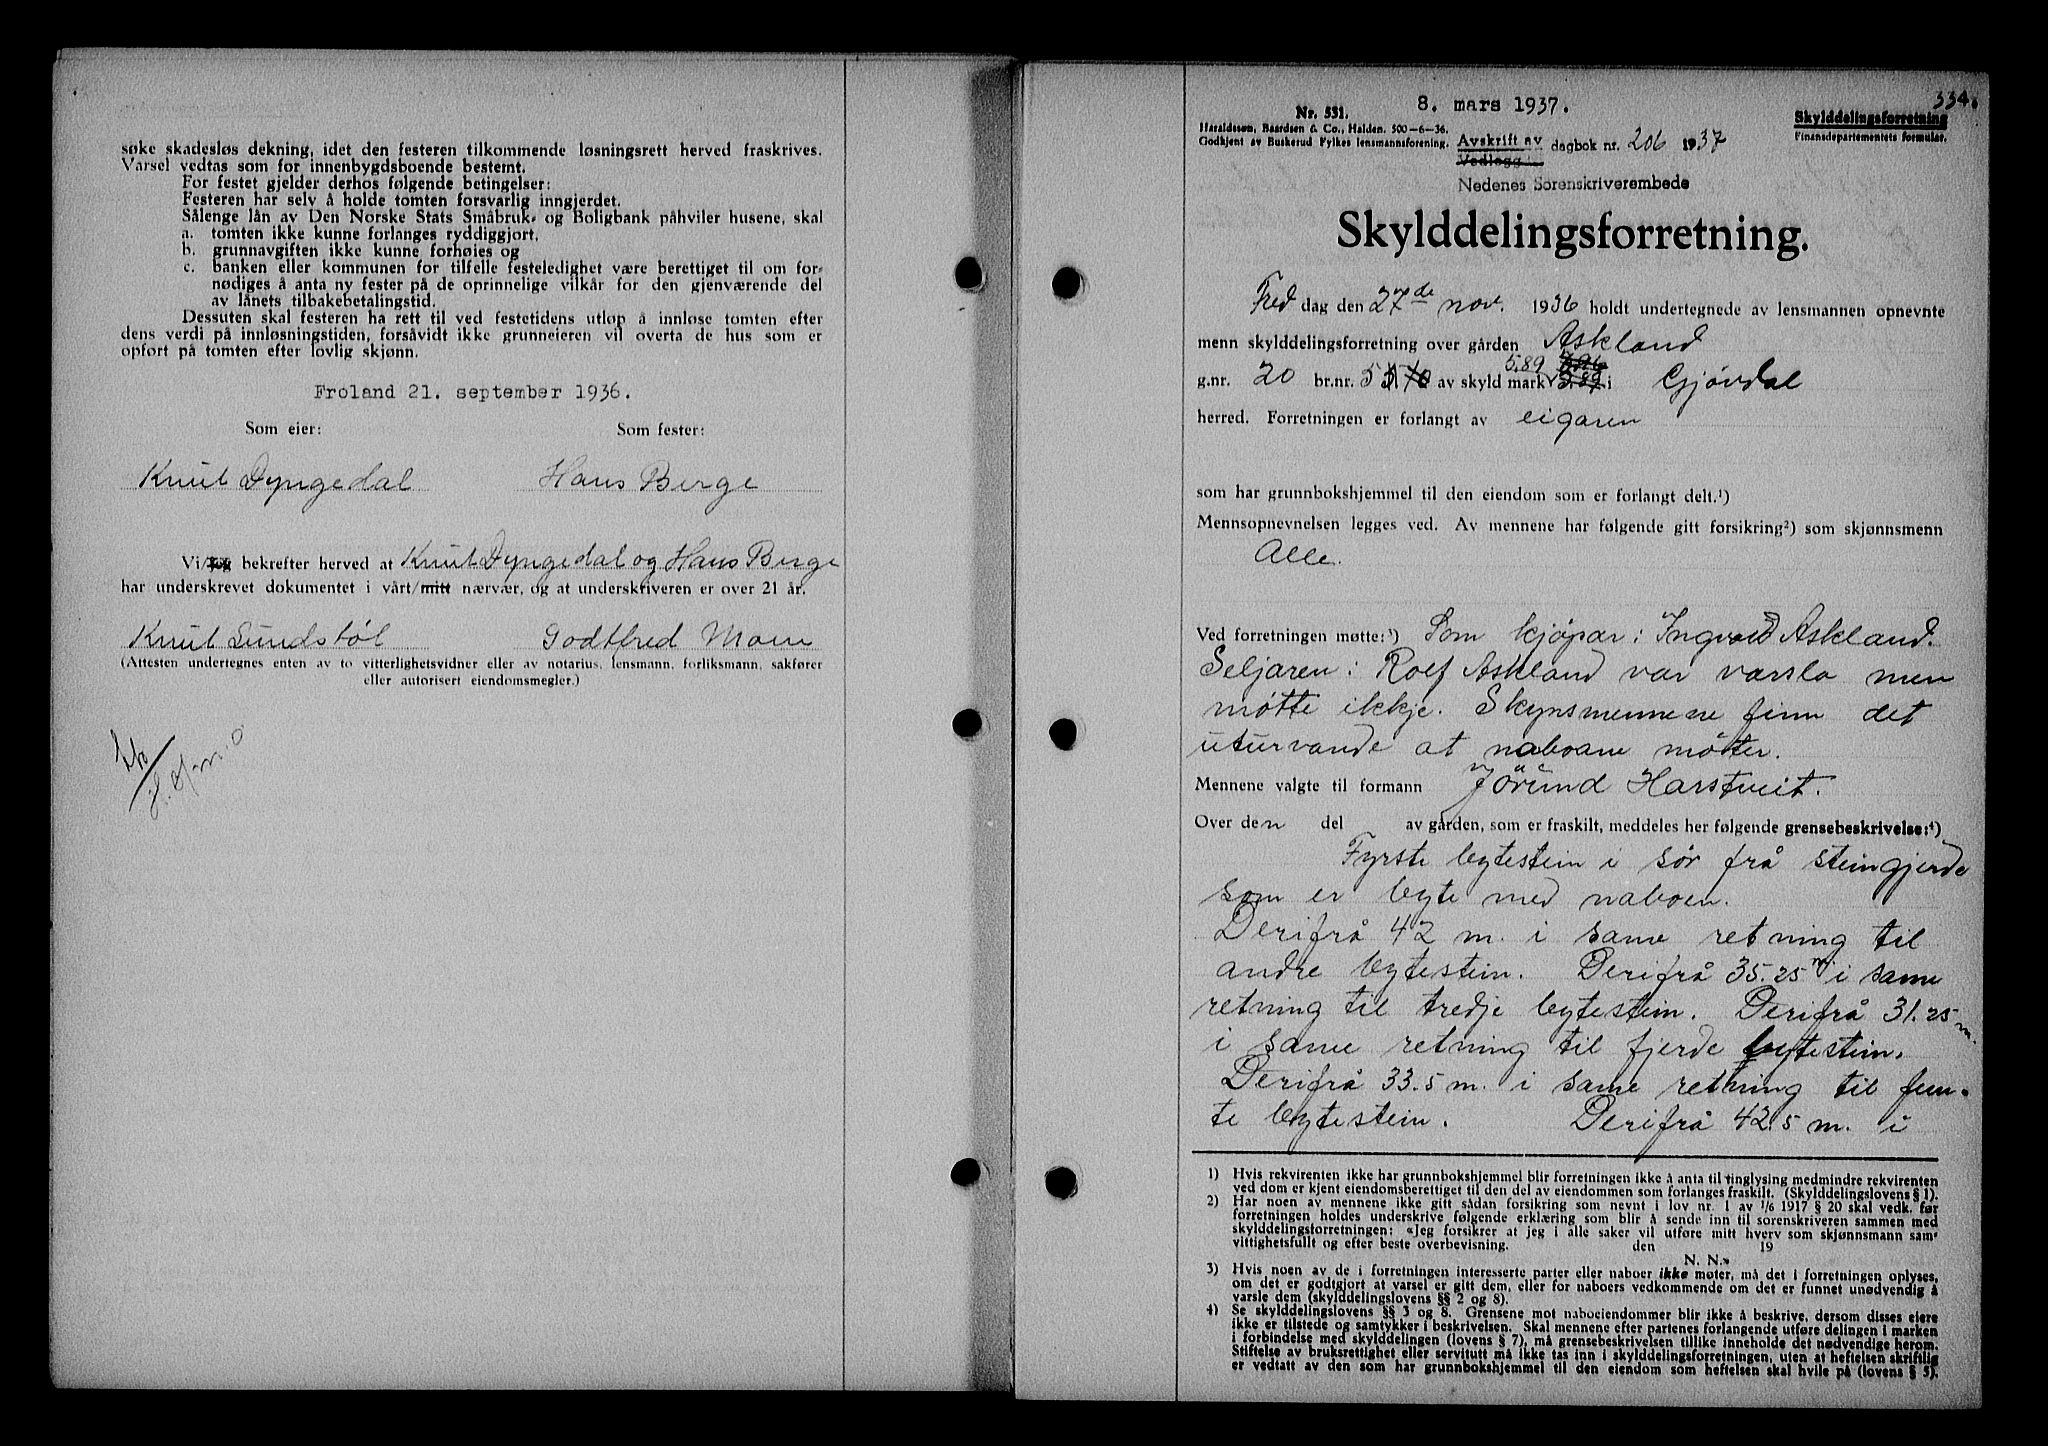 søke skadesløs dekning, idet den festeren tilkommende løsningsrett herved fraskrives.
Varsel vedtas som for innenbygdsboende bestemt.
For festet gjelder derhos følgende betingelser:
Festeren har selv å holde tomten forsvarlig inngjerdet.
Sålenge lån av Den Norske Stats Småbruk- og Boligbank påhviler husene, skal
a. tomten ikke kunne forlanges ryddiggjort,
b. grunnavgiften ikke kunne forhøies og
c. banken eller kommunen for tilfelle festeledighet være berettiget til om for-
nødiges å anta ny fester på de oprinnelige vilkår for den gjenværende del
av lånets tilbakebetalingstid.
Dessuten skal festeren ha rett til ved festetidens utløp å innløse tomten efter
dens verdi på innløsningstiden, forsåvidt ikke grunneieren vil overta de hus som er
opført på tomten efter lovlig skjønn.
Froland 21. september 1936.
Som eier: Som fester:
Knut Dyngedal Hans Berge
Vi/jeg bekrefter herved at Knut Dyngedal og Hans Berge
har underskrevet dokumentet i vårt/mitt nærvær, og at underskriveren er over 21 år.
Knut Lundstøl Godtfred Moen
(Attesten undertegnes enten av to vitterlighetsvidner eller av notarius, lensmann, forliksmann, sakfører
eller autorisert eiendomsmegler.)
334.
8. mars 1937.
Nr. 531.
Haraldssøn, Baardsen & Co., Halden. 500-6-36.
Godkjent av Buskerud Fylkes lensmannsforening.
Skylddelingsforretning
Finansdepartementets formular.
Avskrift av
Vedlegg dagbok nr. 206 1937
Nedenes Sorenskriverembede
Skylddelingsforretning.
Fred dag den 27de nov. 1936 holdt undertegnede av lensmannen opnevnte
menn skylddelingsforretning over gården Askland
g.nr. 20 br.nr. 5 av skyld mark 5.89 i Gjøvdal
herred. Forretningen er forlangt av eigaren
som har grunnbokshjemmel til den eiendom som er forlangt delt.¹)
Mennsopnevnelsen legges ved. Av mennene har følgende gitt forsikring²) som skjønnsmenn
Alle.
Ved forretningen møtte:³) Som kjøpar: Ingvald Askland.
Seljaren: Rolf Askland var varsla men
møtte ikkje. Skynsmennene finn det
uturvande at naboane møter.
Mennene valgte til formann Jörund Harstveit.
Over den del av gården, som er fraskilt, meddeles her følgende grensebeskrivelse:⁴)
Fyrste bytestein i sør frå steingjerde
som er byte med naboen.
Derifrå 42 m. i same retning til
andre bytestein. Derifrå 35.25 m i same
retning til tredje bytestein. Derifrå 31.25 m.
i same retning til fjerde bytestein.
Derifrå 33.5 m. i same retning til fem-
te bytestein. Derifrå 42.5 m. i
1) Hvis rekvirenten ikke har grunnbokshjemmel blir forretningen ikke å anta til tinglysing medmindre rekvirenten
ved dom er kjent eiendomsberettiget til den del av eiendommen som forlanges fraskilt. (Skylddelingslovens § 1).
2) Har noen av mennene ikke gitt sådan forsikring som nevnt i lov nr. 1 av 1/6 1917 § 20 skal vedk. før
forretningen holdes underskrive følgende erklæring som blir å sende inn til sorenskriveren sammen med
skylddelingsforretningen: «Jeg forsikrer at jeg i alle saker vil utføre mitt hverv som skjønnsmann sam-
vittighetsfullt og efter beste overbevisning. den 19
N. N.»
3) Hvis noen av de i forretningen interesserte parter eller naboer ikke møter, må det i forretningen oplyses,
om det er godtgjort at varsel er gitt dem, eller for naboers vedkommende om det er funnet unødvendig å
varsle dem (skylddelingslovens §§ 2 og 8).
4) Se skylddelingslovens §§ 3 og 8. Grensene mot naboeiendommer blir ikke å beskrive, dersom disses eiere
ikke er tilstede og samtykker i beskrivelsen. Skal mennene efter partenes forlangende utføre delingen i marken
i forbindelse med skylddelingen (lovens § 7), må grensebeskrivelsen tillike inneholde det nødvendige herom.
Stiftelse av bruksrettighet eller servitutt må ikke tas inn i skylddelingsforretningen, uten at heftelsen skriftlig
er vedtatt av den som har grunnbokshjemmel til den eiendom som heftelsen skal hvile på (lovens § 5).